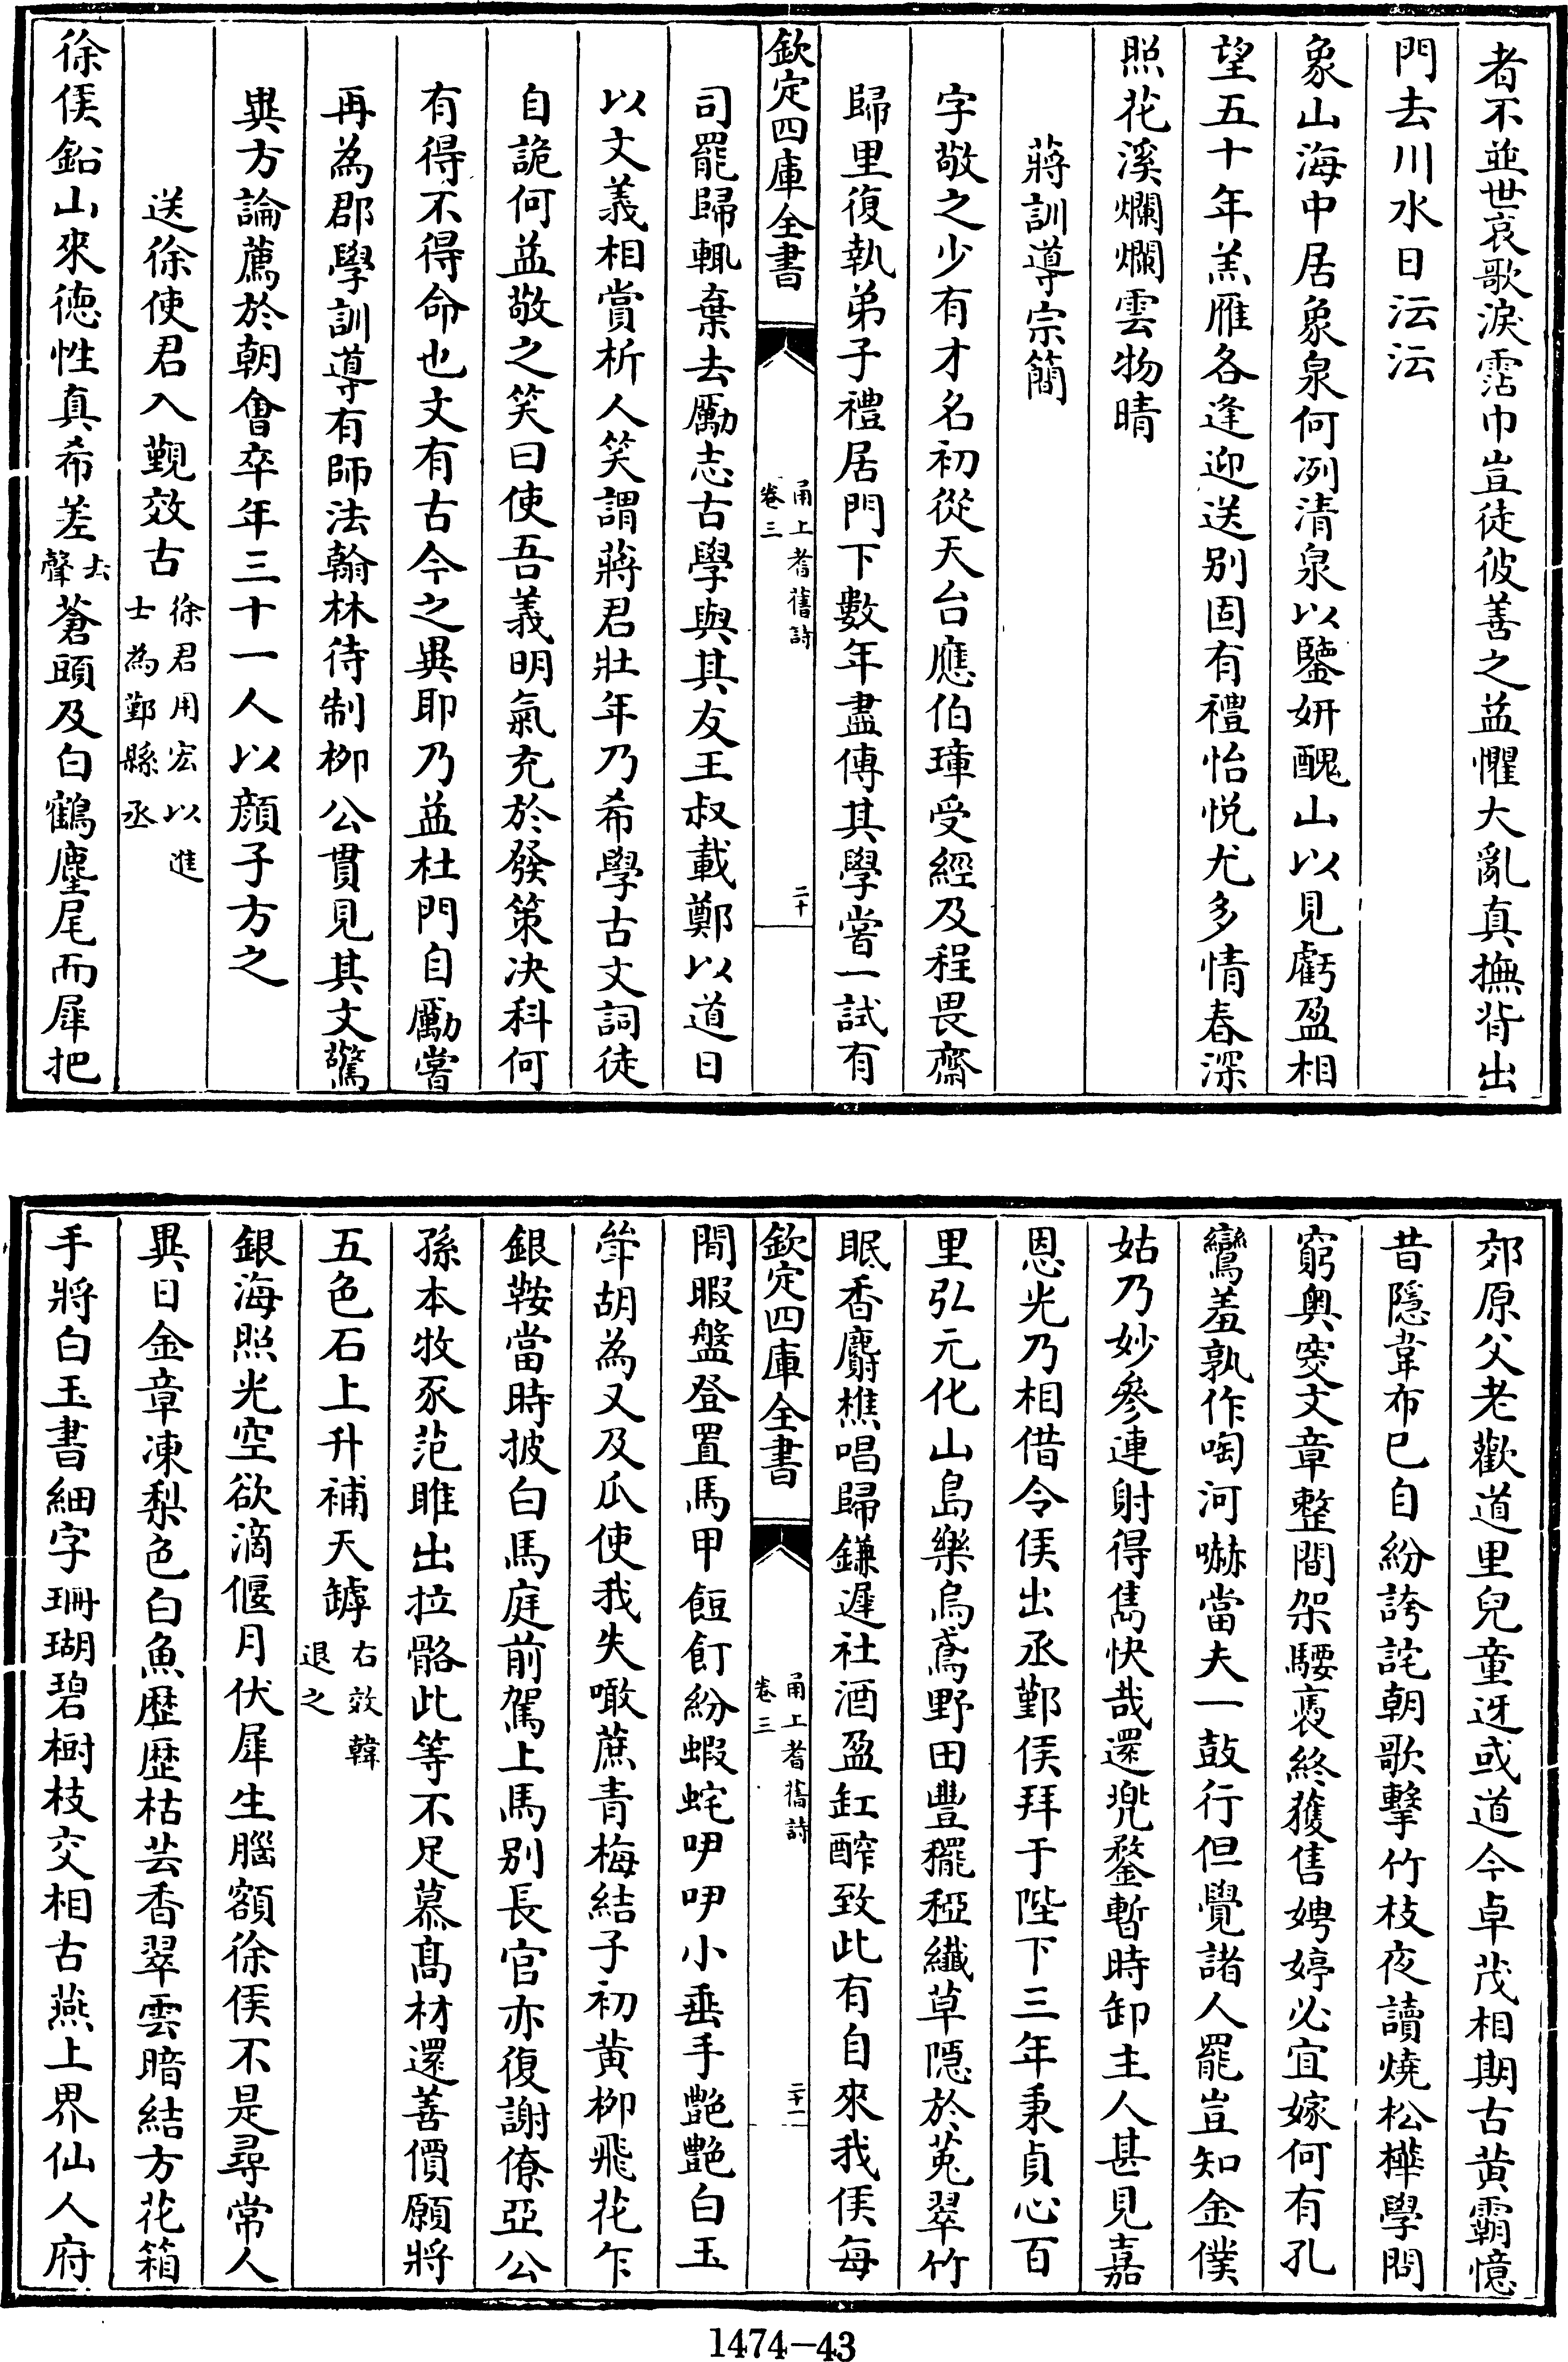 者不並世哀歌淚霑巾豈徒彼善之益懼大亂真撫背出
門去川水日沄沄
象山海中居象泉何冽清泉以鑒妍醜山以見虧盈相
望五十年羔雁各逢迎送别固有禮怡悦尤多情春深
照花溪爛爛雲物晴
蔣訓導宗簡
字敬之少有才名初從天台應伯璋受經及程畏齋
歸里復執弟子禮居門下數年盡傳其學嘗一試有
欽定四庫全書
甬上耆舊詩
卷三
二十
司罷歸輒棄去勵志古學與其友王叔載鄭以道日
以文義相賞析人笑謂蔣君壯年乃希學古文詞徒
自詭何益敬之笑曰使吾義明氣充於發策决科何
有得不得命也文有古今之異耶乃益杜門自勵嘗
再為郡學訓導有師法翰林待制栁公貫見其文驚
異方論薦於朝會卒年三十一人以顔子方之
送徐使君入覲效古
徐君用宏以進
士為鄞縣丞
徐侯鉛山來徳性真希差去聲蒼頭及白鶴麈尾而犀把
郊原父老歡道里兒童迓或道今卓茂相期古黄霸憶
昔隱韋布已自紛誇詫朝歌擊竹枝夜讀燒松樺學問
窮奥窔文章整間架騕褭終獲售娉婷必宜嫁何有孔
鸞羞孰作啕河嚇當夫一鼓行但覺諸人罷豈知金僕
姑乃妙參連射得雋快哉還兠鍪暫時卸主人甚見嘉
恩光乃相借令侯出丞鄞侯拜于陛下三年秉貞心百
里弘元化山島樂烏鳶野田豐䆉稏纎草隠於菟翠竹
眠香麝樵唱歸鎌遲社酒盈缸醡致此有自來我侯每
欽定四庫全書
甬上耆舊詩
卷三
二十一
閒暇盤登置馬甲餖飣紛蝦䖳吚吚小垂手艶艶白玉
斝胡為又及瓜使我失噉蔗青梅結子初黄栁飛花乍
銀鞍當時披白馬庭前駕上馬别長官亦復謝僚亞公
孫本牧豕范雎出拉骼此等不足慕髙材還善價願將
五色石上升補天罅
右效韓
退之
銀海照光空欲滴偃月伏犀生腦額徐侯不是尋常人
異日金章凍梨色白魚歴歴枯芸香翠雲暗結方花箱
手將白玉書細字珊瑚碧樹枝交相古燕上界仙人府
1474-43